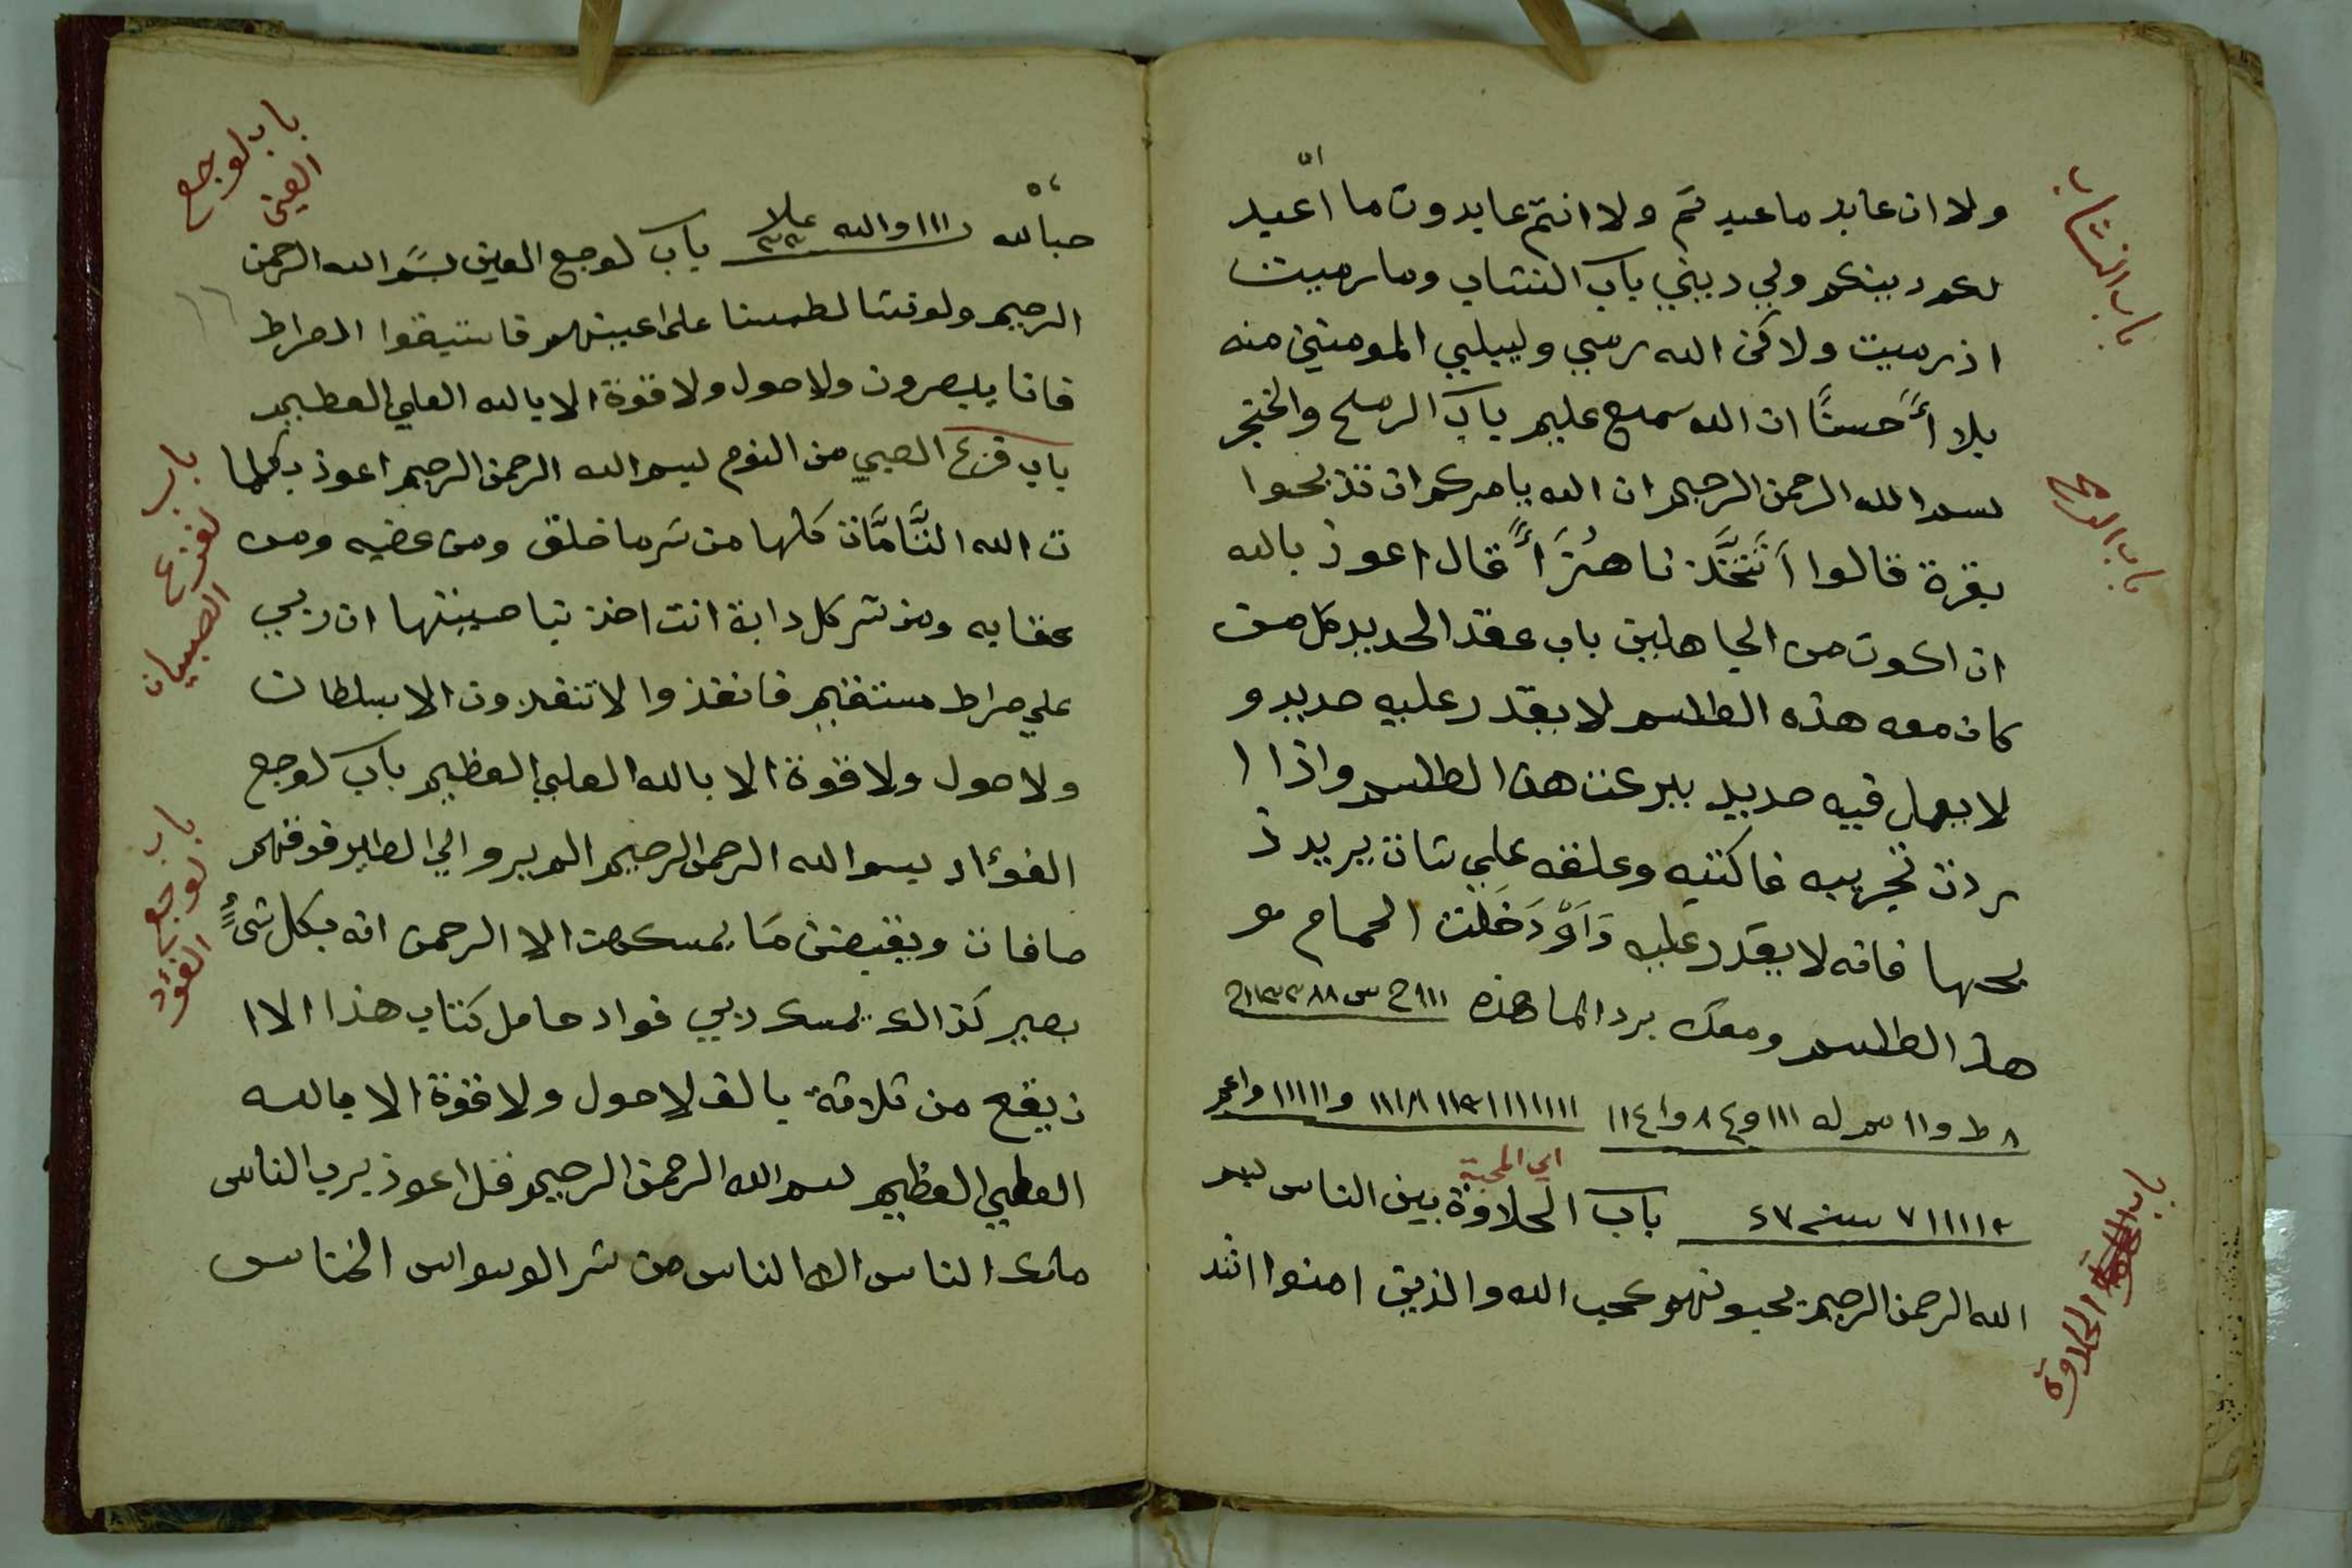 ولا ان عابد ما عبدتم ولا انتم عابدون ما اعبد
لكم دينكم ولي ديني باب النشاب وما رميت
اذ رميت ولاكن الله رمي وليبلي المومنين منه
بلاأً حسنًا ان الله سمع عليم باب الرمح والخنجر
بسم الله الرحمن الرحيم ان الله يامركم ان تذبحوا
بقرة قالوا اَتَتَّخَذ نا هُزَأً قال اعوذ بالله
ان اكون من الجاهلين باب عقد الحديد كل من
كان معه هذه الطلسم لا يقدر عليه حديد و
لا يعمل فيه حديد ببرعت هذا الطلسم واذا ا
ردت تجريبه فاكتبه وعلقه علي شات يريد ذ
بحها فانه لا يقدر عليه وَاَوْ دَخَلت الحمام مع
هذ الطلسم ومعك برد الما هذه
باب الحلاوة بين الناس بسم
اي المحبة
الله الرحمن الرحيم يحبونهم كحب الله والذين امنوا اشد
باب النشاب
باب الرمح
باب الحلاوة
باب لوجع العين بسم الله الرحمن
الرحيم ولو نشا لطمسنا علي اعينهم فاستبقوا الصراط
فانا يبصرون ولا حول ولا قوة الا بالله العلي العظيم
باب فزع الصبي من النوم بسم الله الرحمن الرحيم اعوذ بكلما
ت الله التَّامَّات كلها من شر ما خلق ومن غضبه ومن
عقابه ومن شر كل دابة انت اخذ بنا صيتها ان ربي
علي صراط مستقيم فانفذوا لا تنفذون الا بسلطان
ولا حول ولا قوة الا بالله العلي العظيم باب لوجع
الفؤاد بسم الله الرحمن الرحيم الم يرو الي الطير فوقهم
صافات ويقبضن مَا يمسكهن الا الرحمن انه بكل شيءٍ
بصير كذالك يمسك ربي فواد حامل كتاب هذا الا ا
ن يقع من ثلاثة بالف لا حول ولا قوة الا بالله
العلي العظيم بسم الله الرحمن الرحيم قل اعوذ برب الناس
ملك الناس اله الناس من شر الوسواس الخناس
باب لوجع
العين
باب
لفزع
الصبيان
باب
لوجع
الفؤد